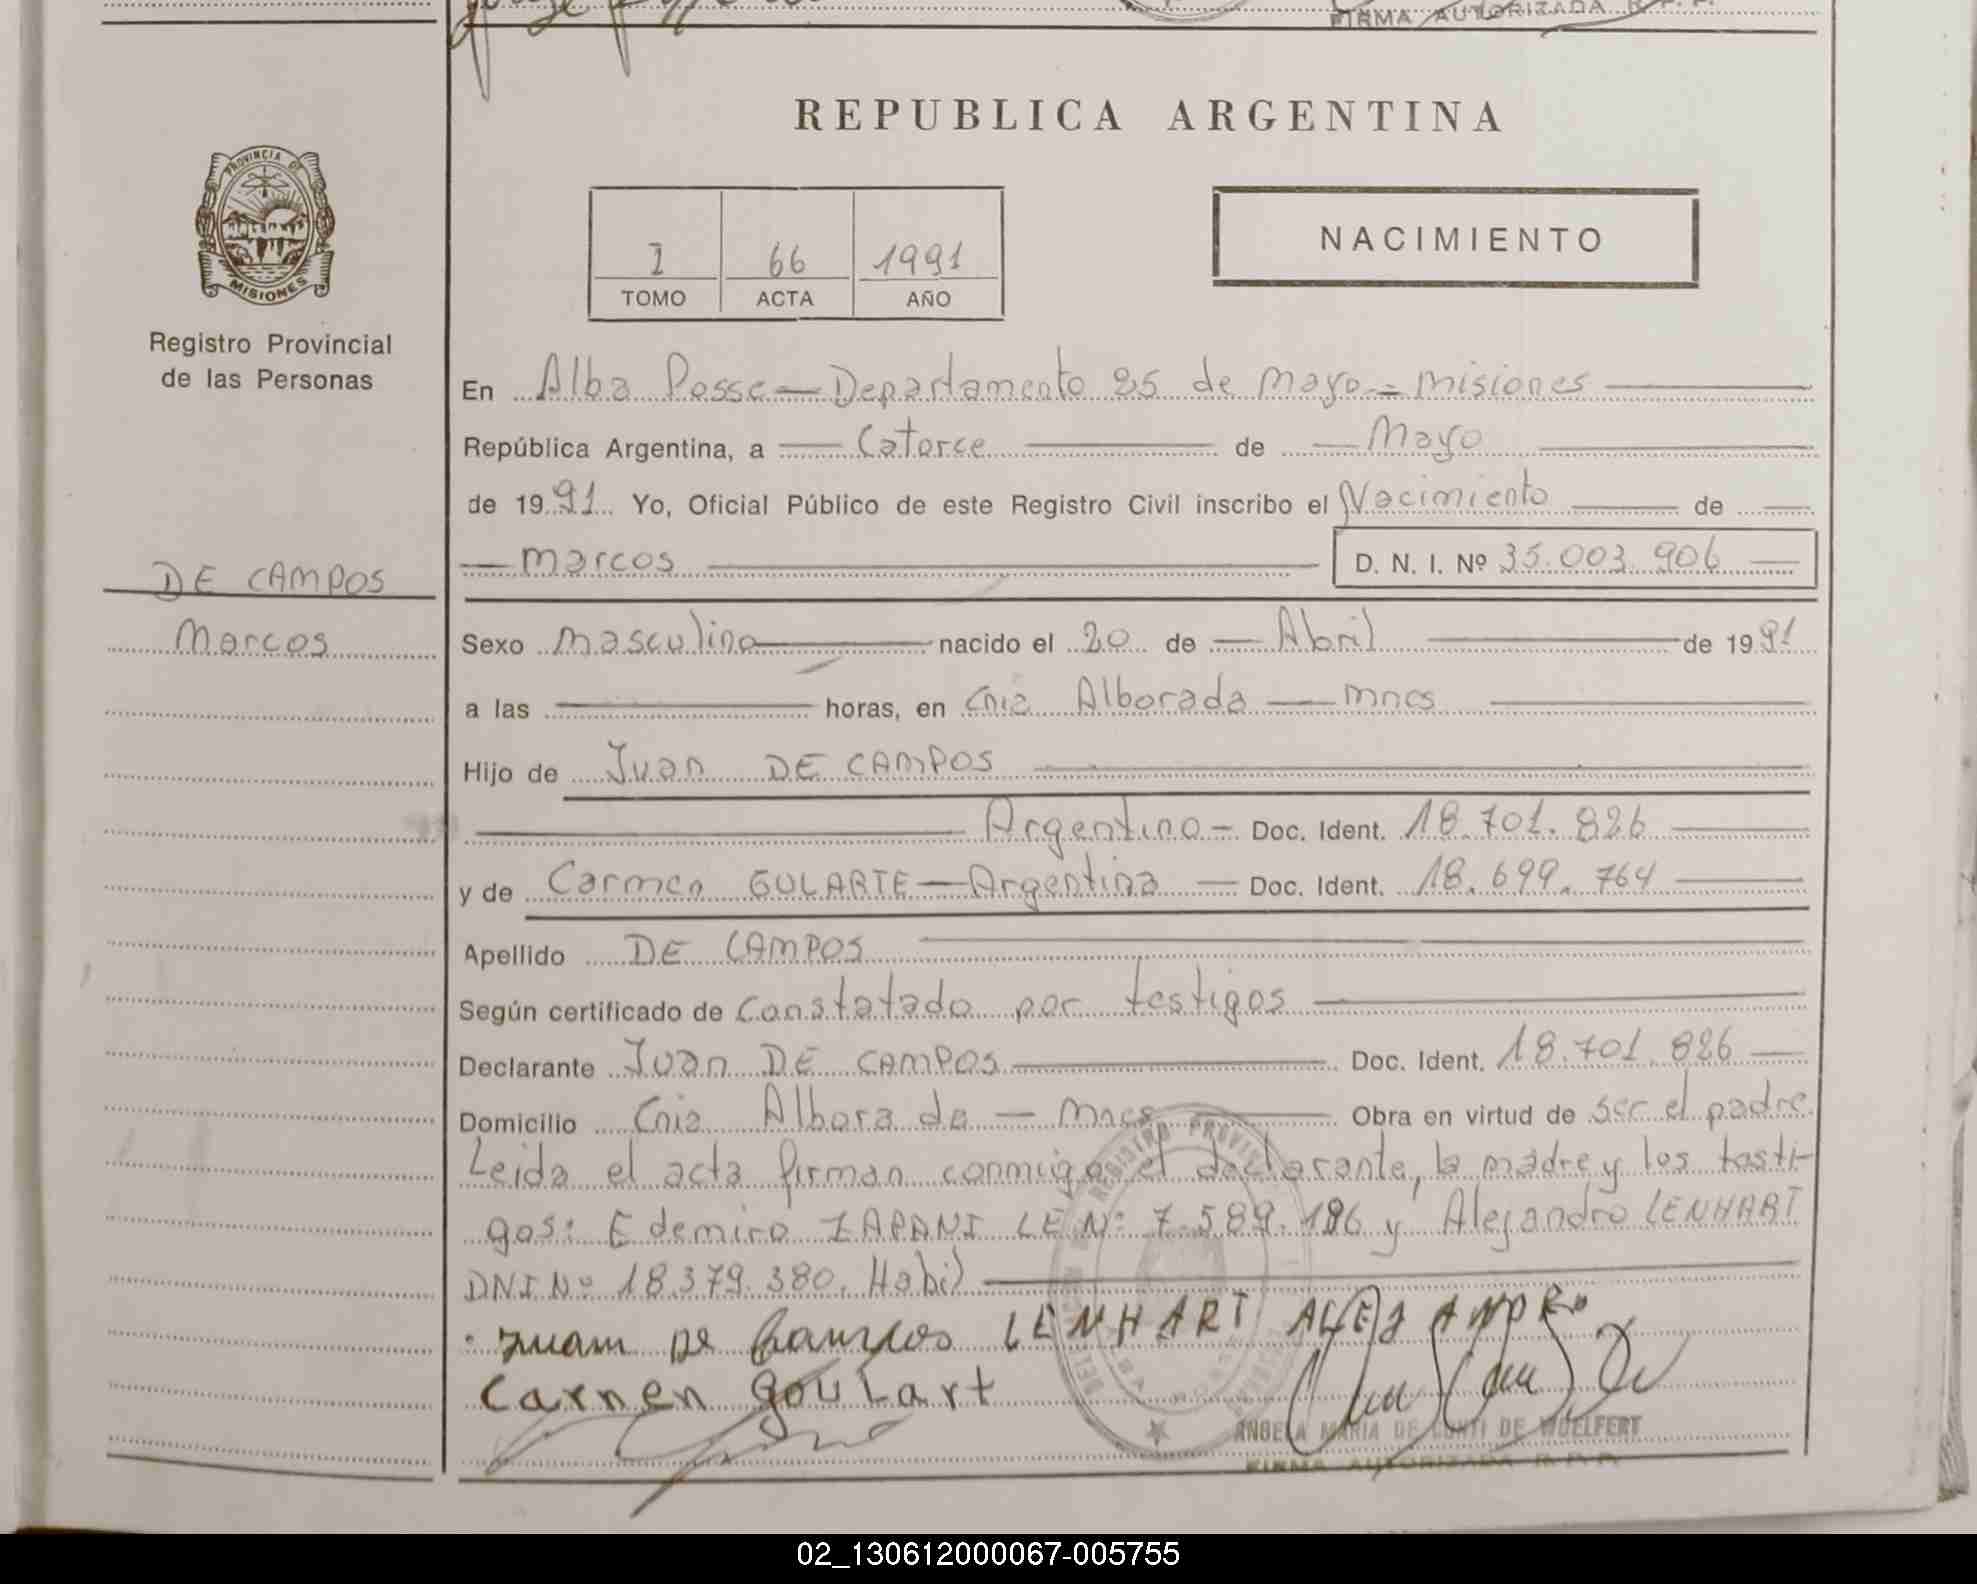 FIRMA AUTORIZADA R.P.P.
REPUBLICA ARGENTINA
PROVINCIA DE
MISIONES
Registro Provincial
de las Personas
1 66 1991
TOMO ACTA AÑO
NACIMIENTO
En Alba Posse — Departamento 25 de Mayo — Misiones
República Argentina, a — Catorce — de — Mayo
de 1991 Yo, Oficial Público de este Registro Civil inscribo el Nacimiento — de —
— Marcos — D. N. I. Nº 35.003.906 —
DE CAMPOS
Marcos
Sexo Masculino — nacido el 20 de — Abril — de 1991
a las — horas, en Cnia Alborada — Mnes —
Hijo de Juan DE CAMPOS —
— Argentino — Doc. Ident. 18.701.826 —
y de Carmen GULARTE — Argentina — Doc. Ident. 18.699.764 —
Apellido DE CAMPOS —
Según certificado de Constatado por testigos —
Declarante Juan DE CAMPOS — Doc. Ident. 18.701.826 —
Domicilio Cnia Alborada — Mnes — Obra en virtud de ser el padre.
Leida el acta firman conmigo el declarante, la madre y los testi-
gos: Edemiro ZAPANI LE Nº 7.589.186 y Alejandro LENHART
DNI Nº 18.379.380. Habil —
Juam De Campos LENHART ALEJANDRO
Carnen goulart
REGISTRO PROVINCIAL
ANGELA MARIA DE CONTI DE WOELFERT
FIRMA AUTORIZADA R.P.P.
02_130612000067-005755